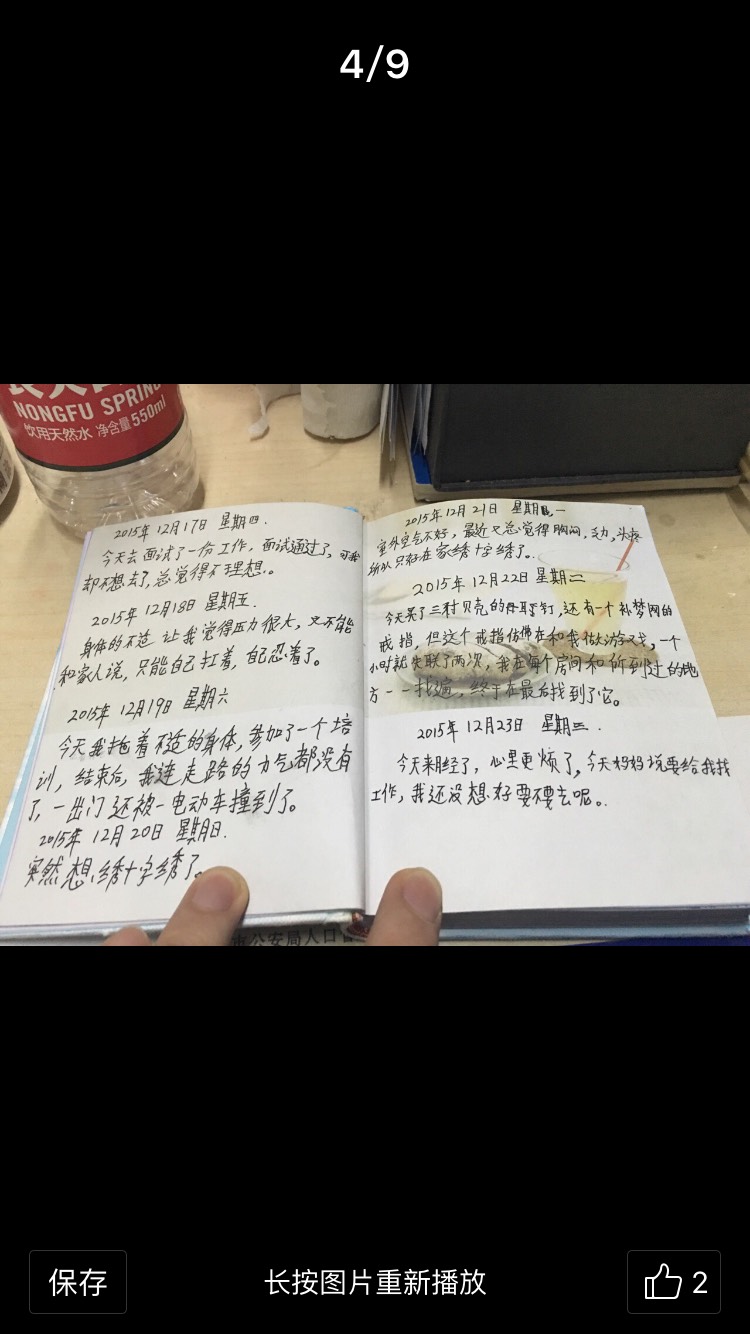 4/9
NONGFU SPRING
饮用天然水 净含量550ml
2015年 12月17日 星期四.
今天去面试了一份工作, 面试通过了, 可我
却不想去了, 总觉得不理想.。
2015年 12月18日 星期五.
身体的不适 让我觉得压力很大, 又不能
和家人说, 只能自己扛着, 自己忍着了。
2015年 12月19日 星期六
今天我拖着不适的身体, 参加了一个培
训, 结束后, 我连走路的力气都没有
了, 一出门还被一电动车撞到了。
2015年 12月20日 星期日.
突然想绣十字绣了。
2015年 12月21日 星期一
室外空气不好, 最近又总觉得胸闷, 乏力, 头疼
所以只好在家绣十字绣了..
2015年12月22日 星期二
今天买了三对贝壳的耳钉, 还有一个补梦网的
戒指, 但这个戒指仿佛在和我做游戏, 一个
小时就失联了两次, 我在每个房间和所到过的地
方一一找遍, 终于在最后找到了它。
2015年 12月23日 星期三.
今天来月经了, 心里更烦了, 今天妈妈说要给我找
工作, 我还没想好要不要去呢。.
市公安局人口
保存
长按图片重新播放
2